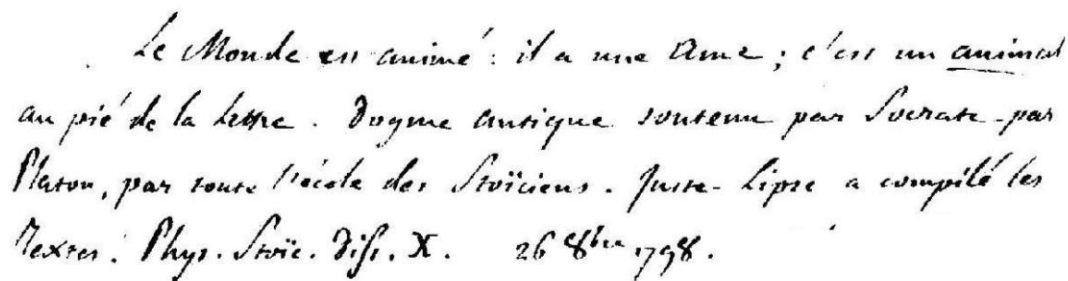 Le Monde est animé : il a une Ame ; c'est un animal
au pié de la lettre. Dogme antique soutenu par Socrate par
Platon, par toute l'école des Stoïciens. Juste-Lipse a compilé les
Textes. Phys. Stoïc. Diss. X. 26 8bre 1798.